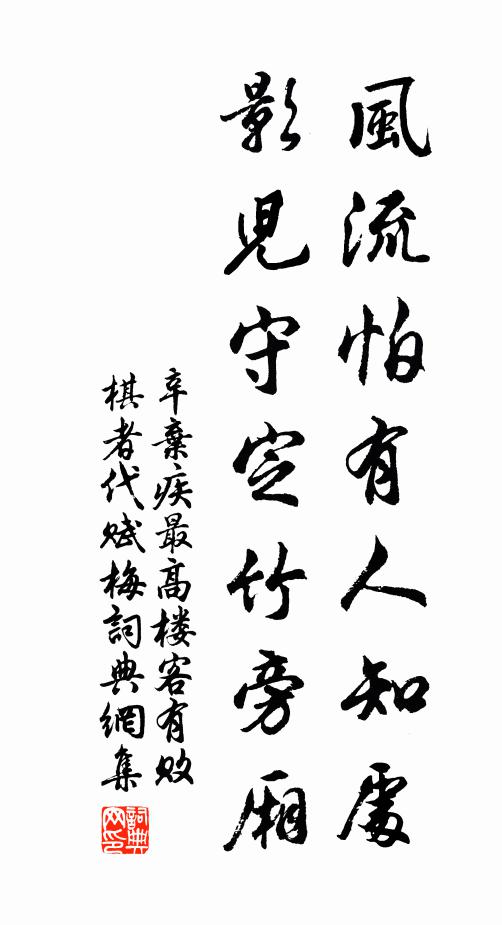 風流怕有人知處
影兒守定竹旁廂
辛棄疾最高楼客有敗
棋者代赋梅詞典網集
詞典網印